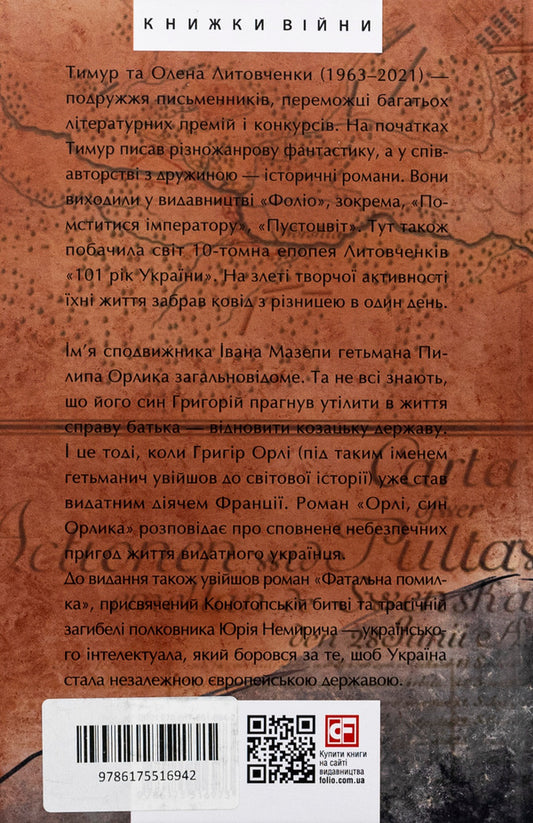 КНИЖКИ ВІЙНИ
Тимур та Олена Литовченки (1963–2021) —
подружжя письменників, переможці багатьох
літературних премій і конкурсів. На початках
Тимур писав різножанрову фантастику, а у спів-
авторстві з дружиною — історичні романи. Вони
виходили у видавництві «Фоліо», зокрема, «По-
мститися імператору», «Пустоцвіт». Тут також
побачила світ 10-томна епопея Литовченків
«101 рік України». На злеті творчої активності
їхні життя забрав ковід з різницею в один день.
Ім’я сподвижника Івана Мазепи гетьмана Пи-
липа Орлика загальновідоме. Та не всі знають,
що його син Григорій прагнув утілити в життя
справу батька — відновити козацьку державу.
І це тоді, коли Григір Орлі (під таким іменем
гетьманич увійшов до світової історії) уже став
видатним діячем Франції. Роман «Орлі, син
Орлика» розповідає про сповнене небезпечних
пригод життя видатного українця.
До видання також увійшов роман «Фатальна помил-
ка», присвячений Конотопській битві та трагічній
загибелі полковника Юрія Немирича — українсько-
го інтелектуала, який боровся за те, щоб Україна
стала незалежною європейською державою.
Carta
över
Actionen
Pultas
Swenska
9786175516942
Купити книги
на сайті
видавництва
folio.com.ua